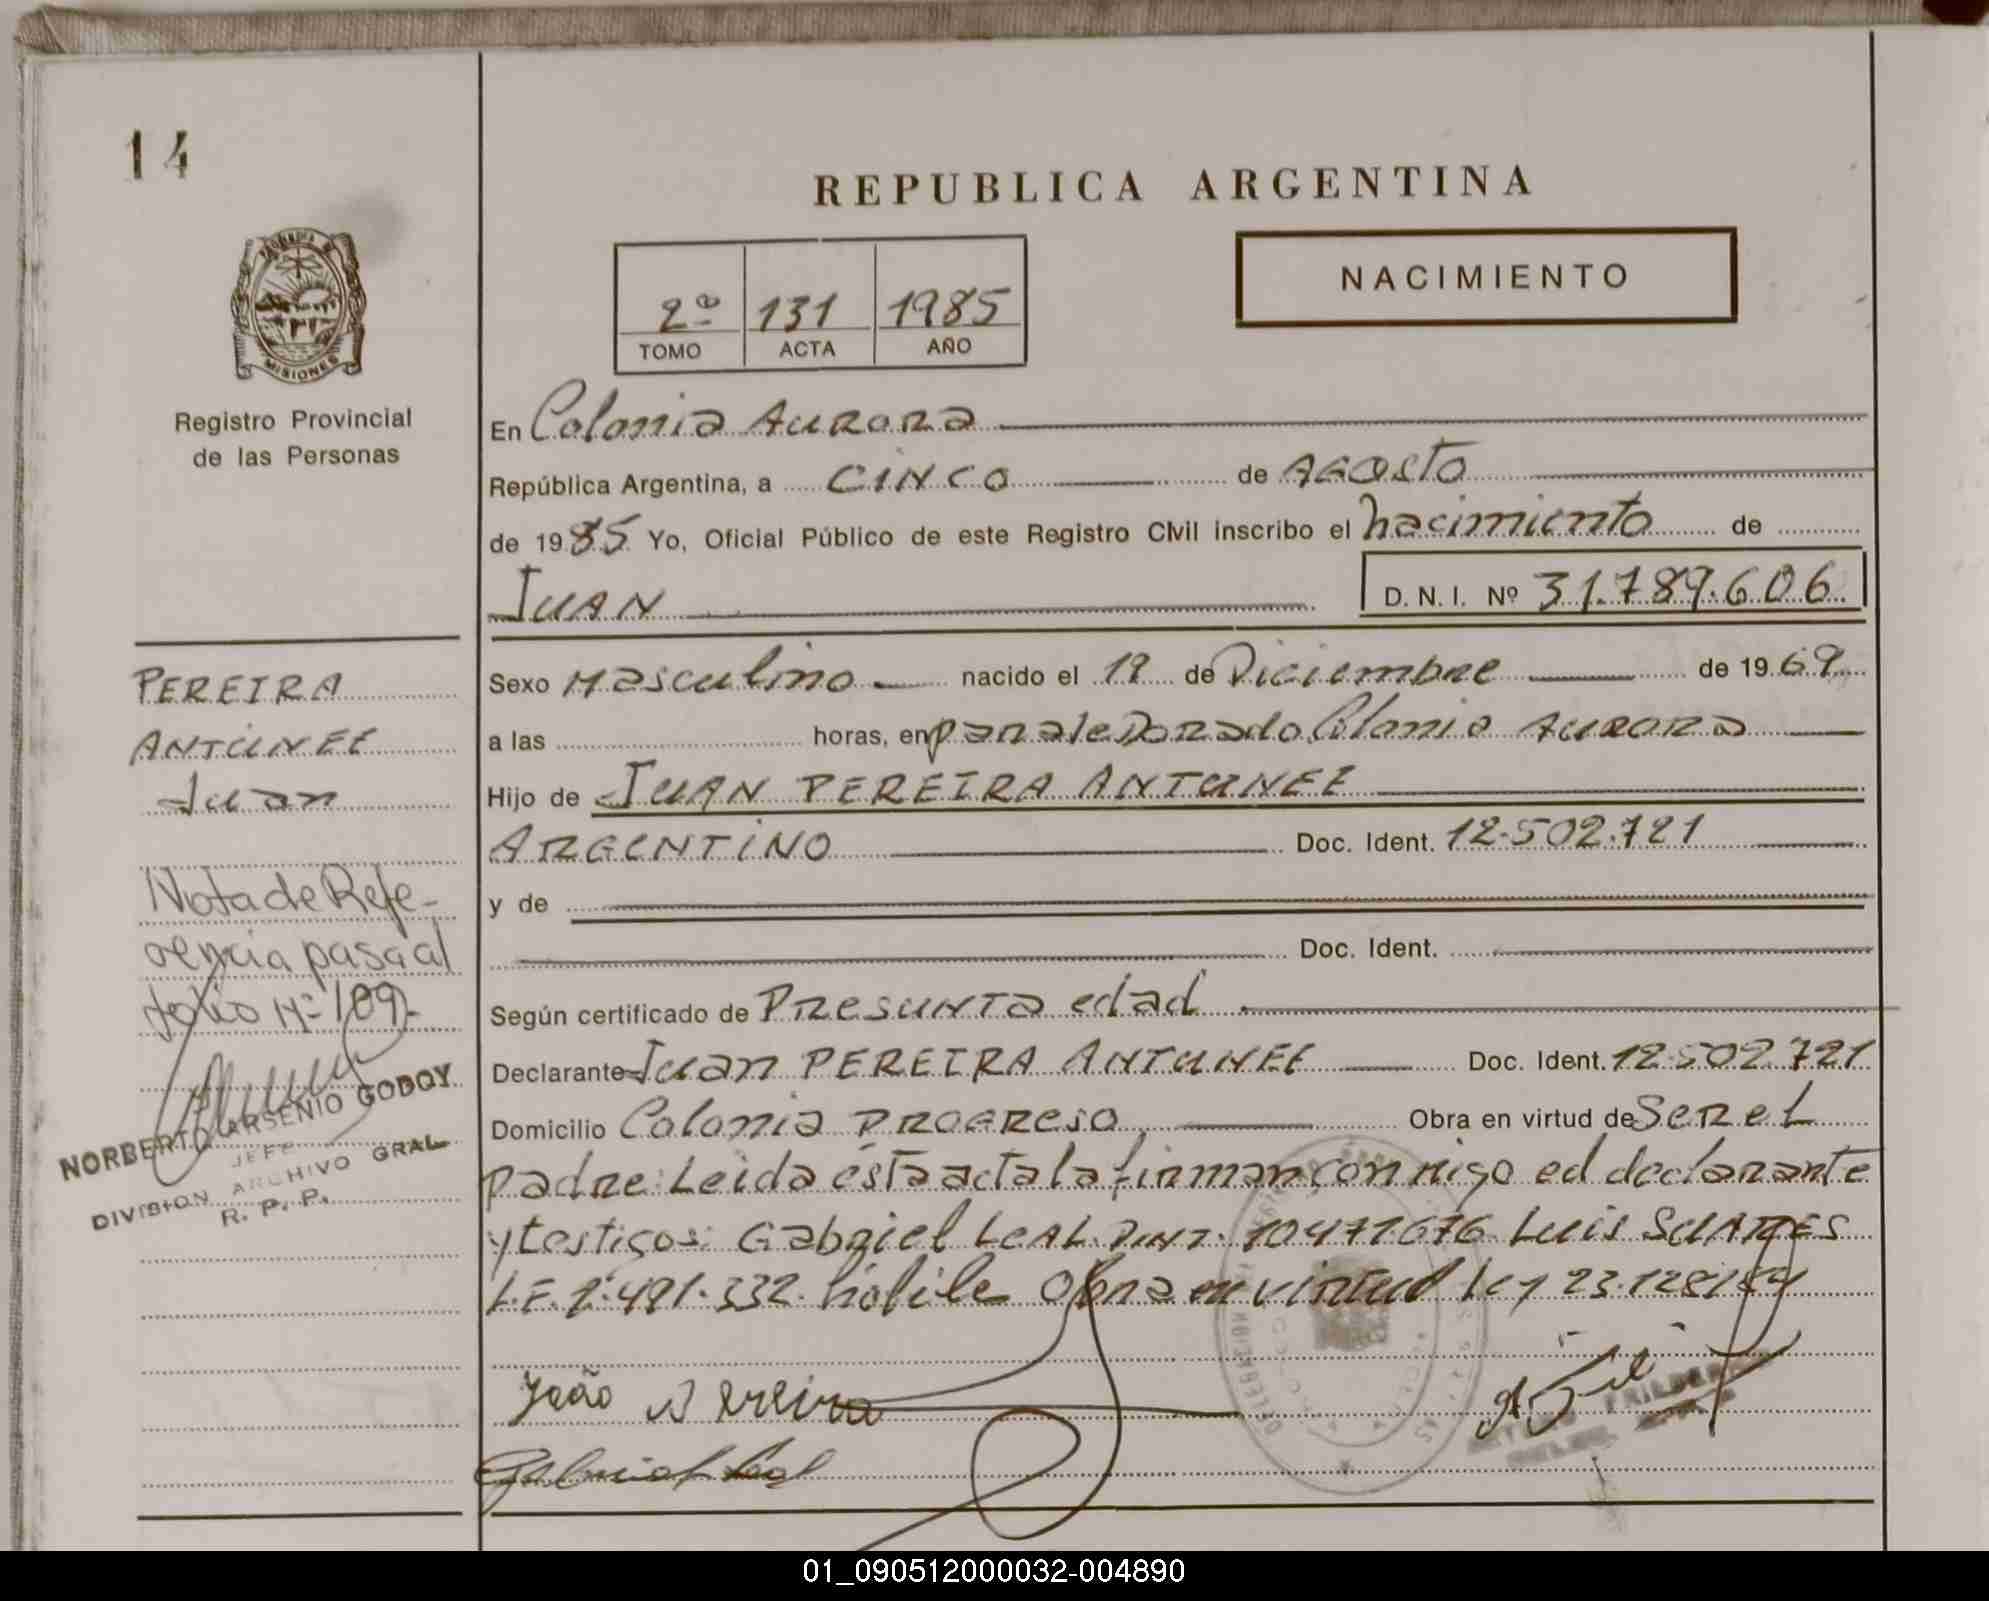 14
REPUBLICA ARGENTINA
PROVINCIA D
MISIONES
Registro Provincial
de las Personas
2º 131 1985
TOMO ACTA AÑO
NACIMIENTO
En Colonia Aurora
República Argentina, a CINCO de Agosto
de 1985 Yo, Oficial Público de este Registro Civil inscribo el nacimiento de
JUAN D. N. I. Nº 31.789.606
PEREIRA
ANTUNEZ
Juan
Nota de Refe-
rencia pasa al
folio Nº 109.-
NORBERTO ARSENIO GODOY
JEFE
DIVISION ARCHIVO GRAL
R. P. P.
Sexo Masculino nacido el 19 de Diciembre de 1969
a las horas, en paraje Dorado Colonia Aurora
Hijo de JUAN PEREIRA ANTUNEZ
ARGENTINO Doc. Ident. 12.502.721
y de
Doc. Ident.
Según certificado de Presunta edad
Declarante Juan PEREIRA ANTUNEZ Doc. Ident. 12.502.721
Domicilio Colonia Progreso Obra en virtud de Ser el
padre: Leida ésta acta la firman con migo el declarante
y testigos: Gabriel LEAL D.N.I. 10471676 Luis SUARES
L.E. 2.491.332. hábile Obra en virtud ley 23.128/84
João Pereira
Gabriel Leal
01_090512000032-004890